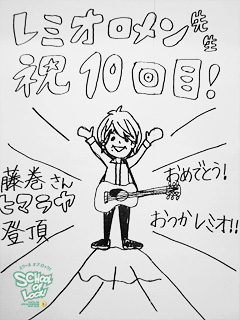 レミオロメン先生
祝10回目!
藤巻さん
ヒマラヤ
登頂
おめでとう!
おつかレミオ!!
SCHOOL
OF
LOCK!